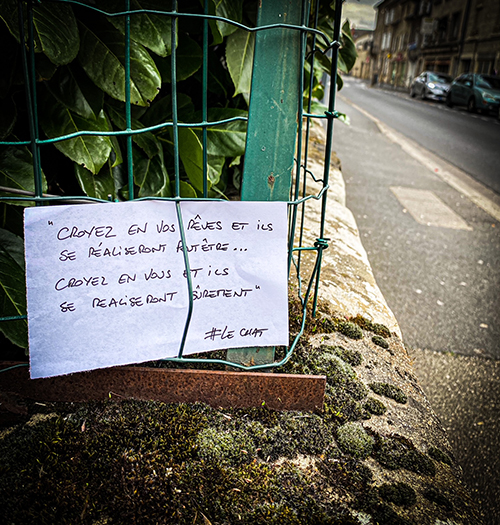 "CROYEZ EN VOS RÊVES ET ILS
SE RÉALISERONT PEUT ÊTRE...
CROYEZ EN VOUS ET ILS
SE REALISERONT SÛREMENT"
#LE CHAT